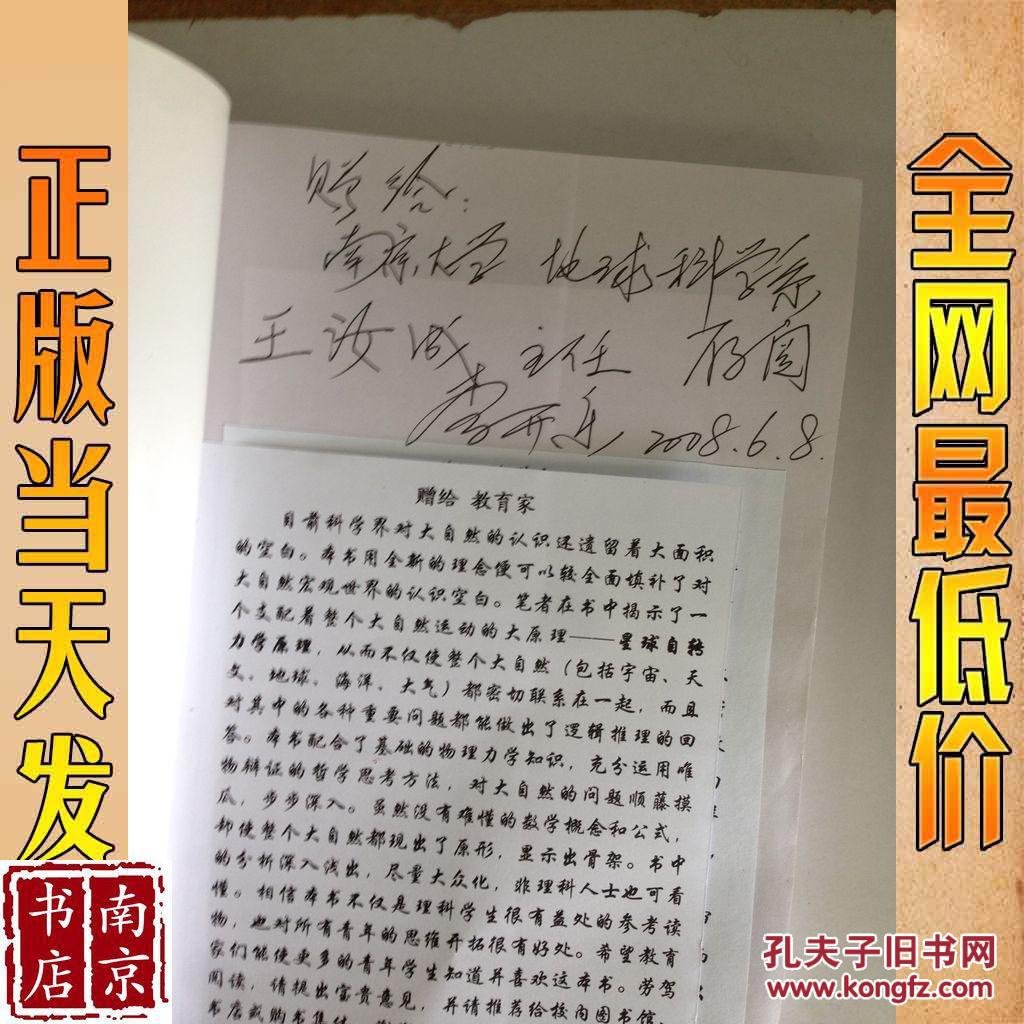 正版当天发
全网最低价
赠给:
南京大学 地球科学系
王汝成 主任 存阅
李开乐 2008.6.8.
赠给 教育家
目前科学界对大自然的认识还遗留着大面积
的空白。本书用全新的理念便可以较全面填补了对
大自然宏观世界的认识空白。笔者在书中揭示了一
个支配着整个大自然运动的大原理——星球自转
力学原理,从而不仅使整个大自然(包括宇宙、天
文、地球、海洋、大气)都密切联系在一起,而且
对其中的各种重要问题都能做出了逻辑推理的回
答。本书配合了基础的物理力学知识,充分运用唯
物辩证的哲学思考方法,对大自然的问题顺藤摸
瓜,步步深入。虽然没有难懂的数学概念和公式,
却使整个大自然都现出了原形,显示出骨架。书中
的分析深入浅出,尽量大众化,非理科人士也可看
懂。相信本书不仅是理科学生很有益处的参考读
物,也对所有青年的思维开拓很有好处。希望教育
家们能使更多的青年学生知道并喜欢这本书。劳驾
阅读,请提出宝贵意见,并请推荐给校内图书馆、
书店或购书集体
南京
书店
孔夫子旧书网
www.kongfz.com